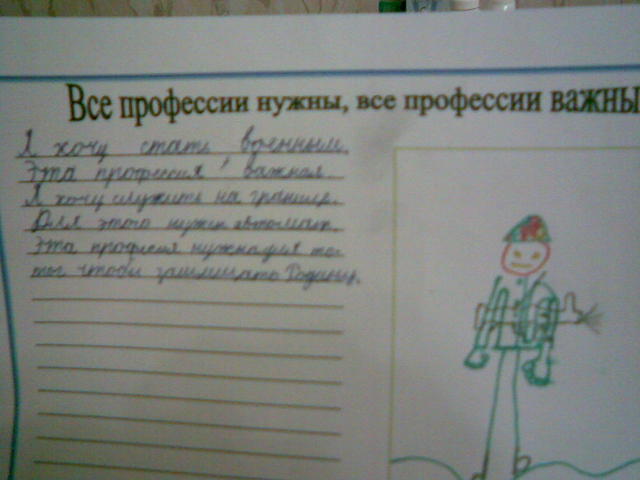 Все профессии нужны, все профессии важны
Я хочу стать военным.
Эта профессия важная.
Я хочу служить на границе.
Для этого нужен автомат.
Эта професия нужна для то-
го чтобы защищать Родину.